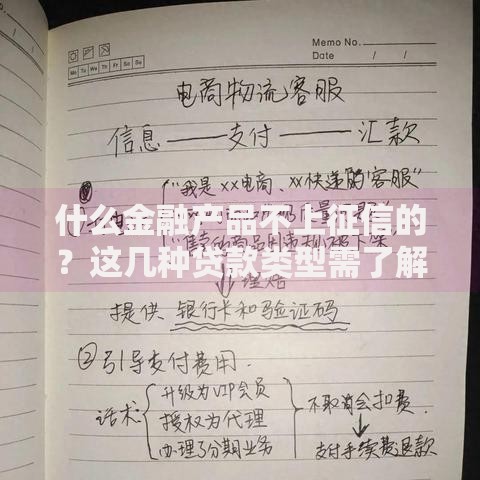 Memo No.
Mo Tu We Th Fr Sa Su
Date / /
电商物流客服
信息——支付——汇款
"我是xx电商、xx快递的客服"
什么金融产品不上征信的
？这几种贷款类型需了解
理赔
提供 银行卡和验证码
②引导支付费用.
话术
升级为VIP会员
授权为代理
办理了分期业务
不取消会扣费.
支付手续费退款